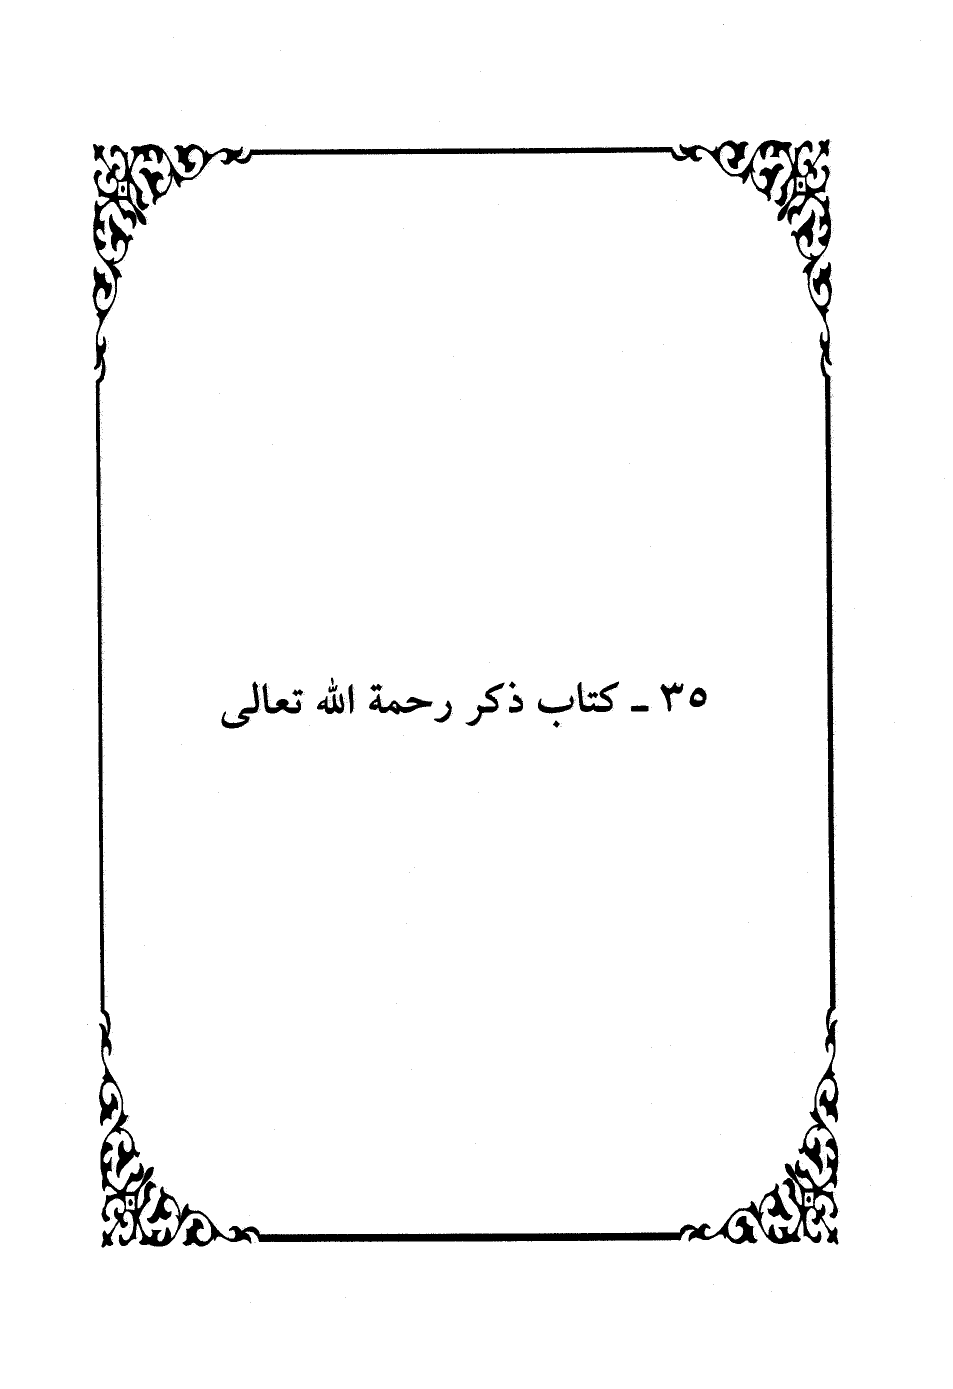 ٣٥ ـ كتاب ذكر رحمة الله تعالى